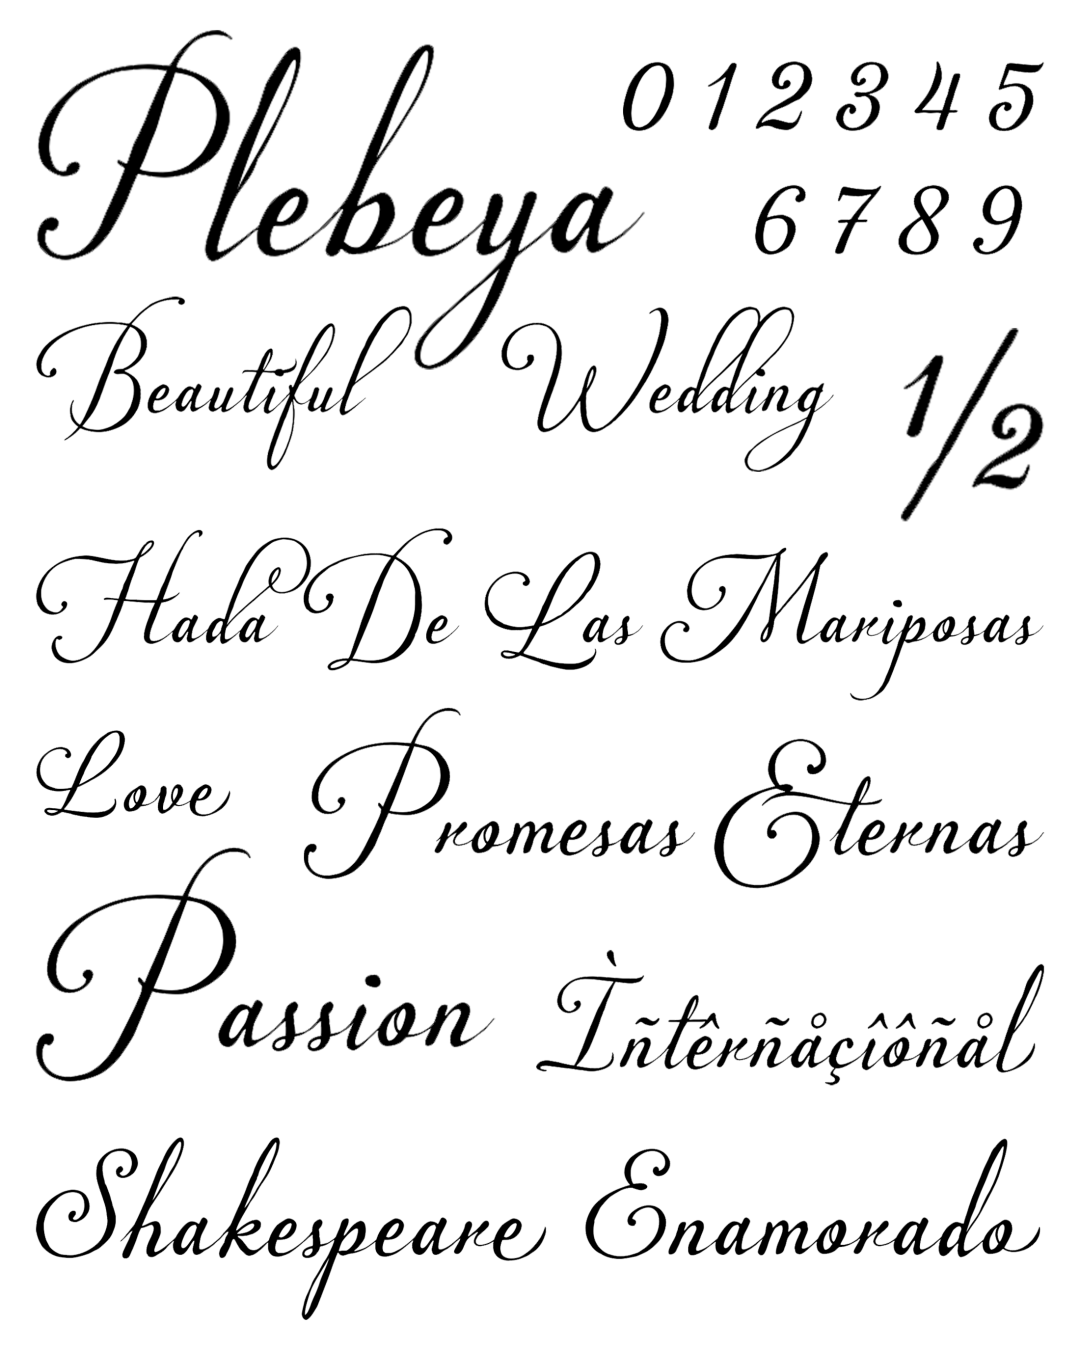 Plebeya
0 1 2 3 4 5
6 7 8 9
Beautiful Wedding 1/2
Hada De Las Mariposas
Love Promesas Eternas
Passion Ìñtêrñåçîôñål
Shakespeare Enamorado